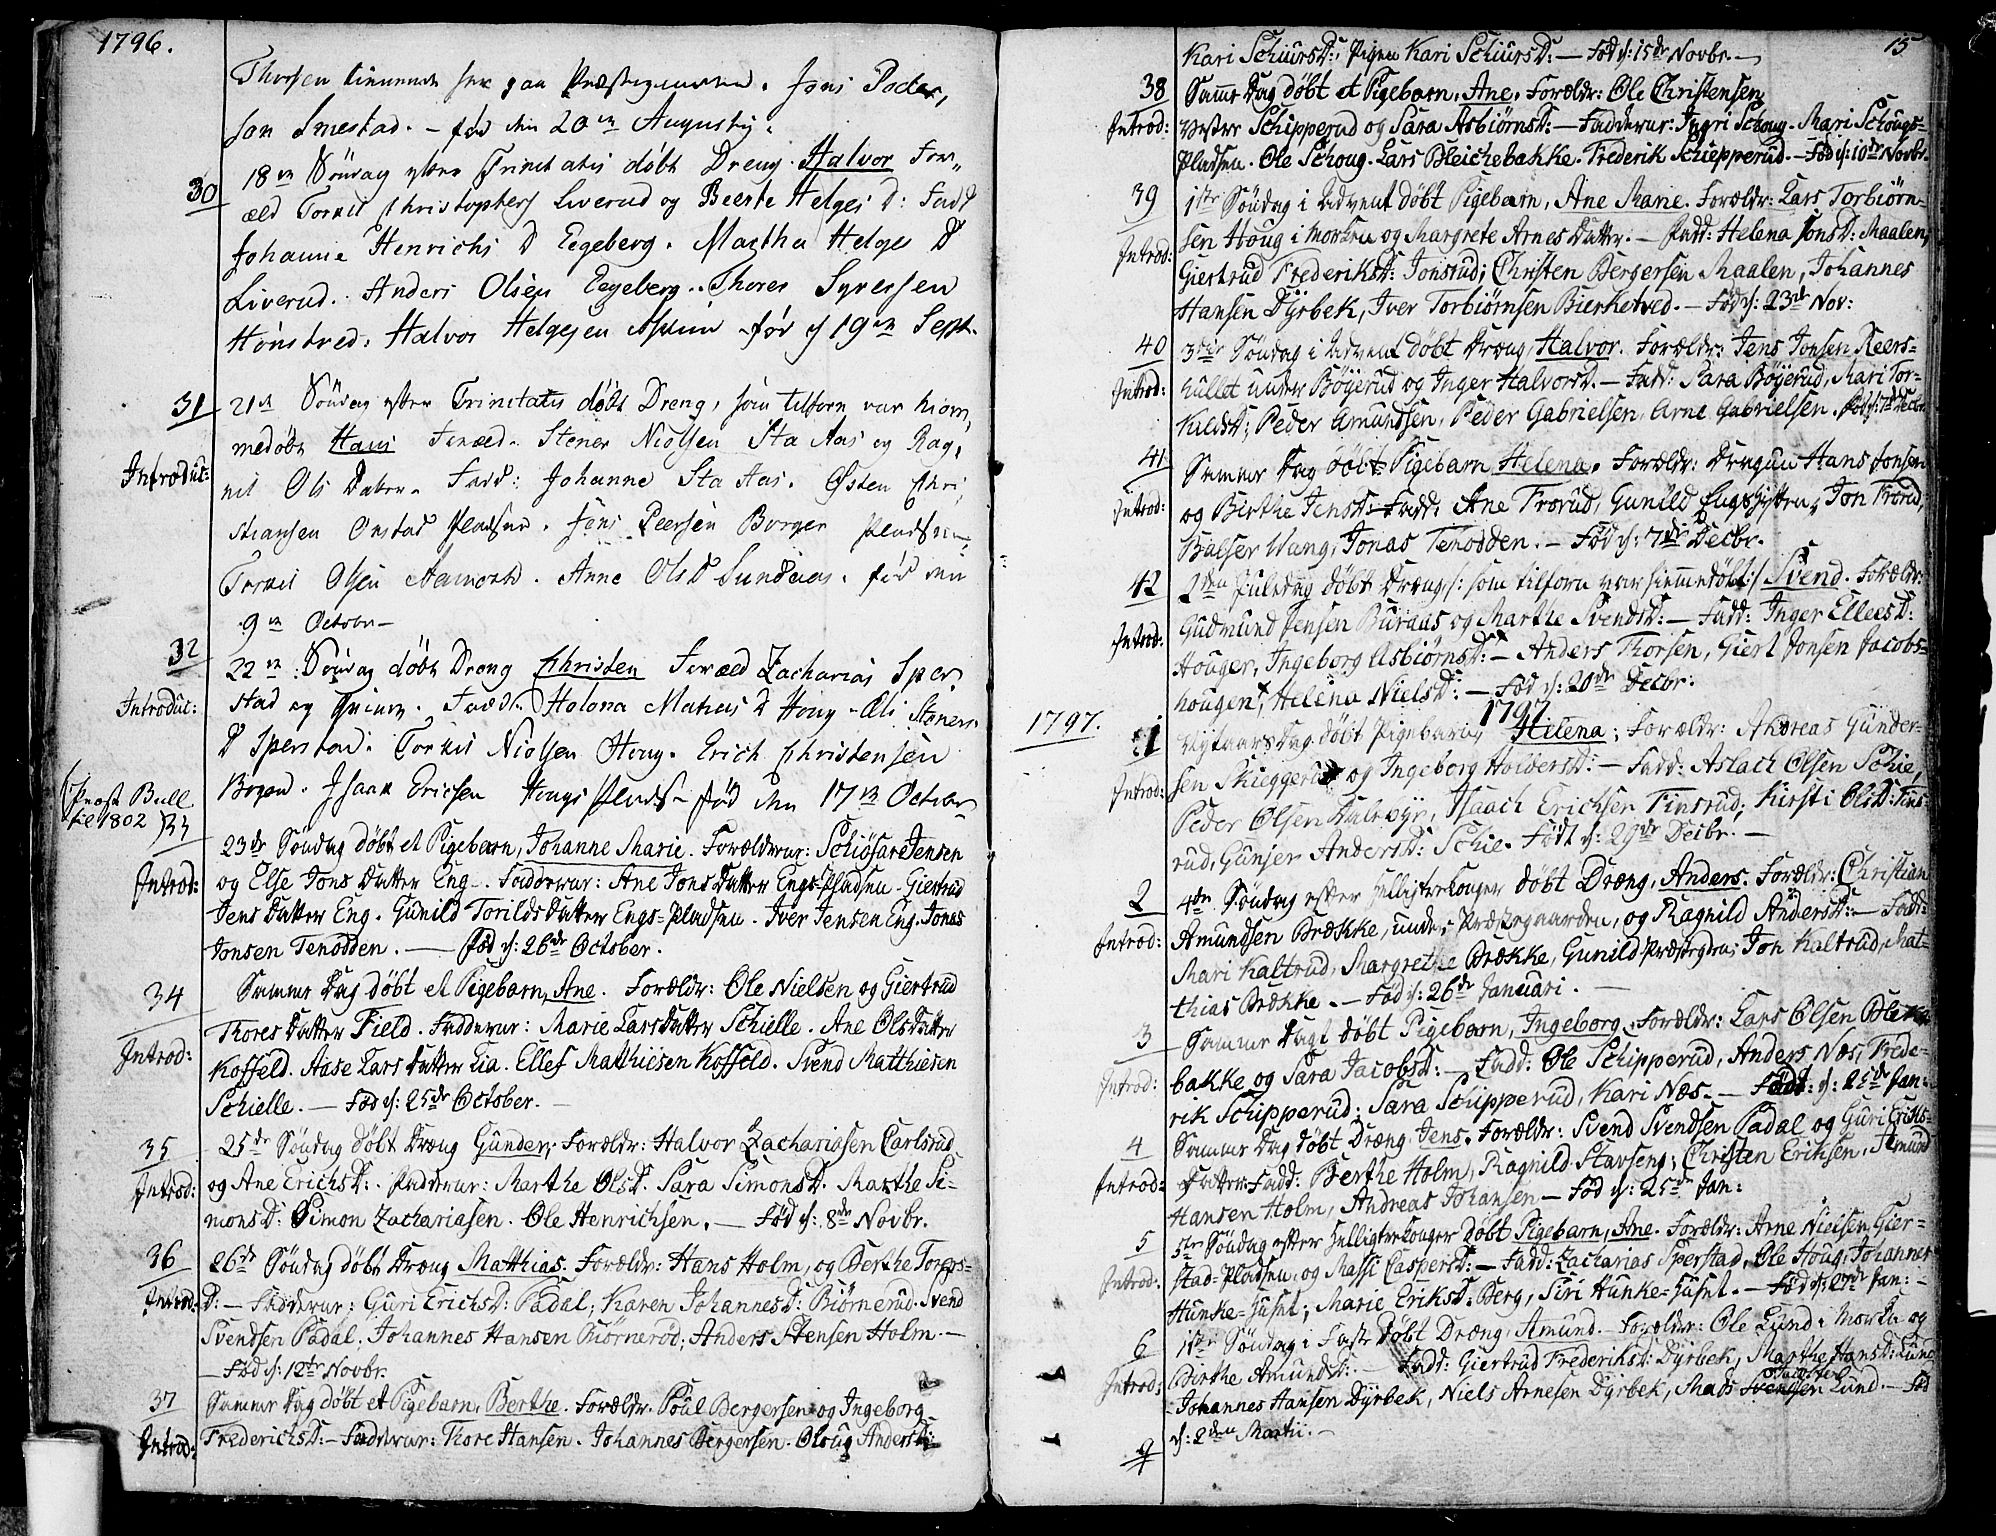 1796.
Thorsen tienende her paa Præstegaarden. Jens Peder,
sen Smestad. – fød den 20de Augustij.
30
18de Søndag efter Trinitatis døbt Dreng. Halvor For,,
æld Torkil Christophers Liverud og Beerte Helges D: Fadd
Johanne Henrichs D Eegeberg. Martha Helges D
Liverud. Anders Olsen Eegeberg. Thores Syversen
Hønstved. Halvor Helgesen Askim – fød d 19de Sept.
31
21de Søndag efter Trinitatis døbt Dreng, som tilforn var hiem,
medøbt Hans Foræld. Stener Nielsen Sta Aas og Rag,
Introduc:
nil Ols Dater. Fadd: Johanne Sta Aas. Østen Chri
stiansen Onstad Pladsen. Jens Peersen Borger Pladsen
Torkil Olsen Aamodt. Anne Ols D Sundaas. fød den
9de Octobr –
32
22de Søndag døbt Dreng Christen Foræld Zacharias Sper,
Introduc:
stad og Fadd. Helena Mathias D Houg – Oli Steners
D Sperstad. Torkil Nielsen Houg. Erich Christensen
Isaak Ericsen Hougs Plads – fød den 17de Octobr
(Prost Bull
til 1802) 33
23de Søndag døbt et Pigebarn, Johanne Marie. Forælderne: Schiøsar Jensen
Introd:
og Else Jons Datter Eng –. Fadderne: Ane Jons Datter Engs-Pladsen. Giertrud
Jens Datter Eng. Gunild Torilds Datter Engs-Pladsen. Iver Jensen Eng. Jonas
Jonsen Tenodden. — Fød d: 26de October.
34
Samme Dag døbt et Pigebarn, Ane. Forældr: Ole Nielsen og Giertrud
Introd:
Thores Datter Field. Fadderne: Marie Lars Datter Schielle. Ane Ols Datter
Koffeld. Aase Lars Datter Lia. Ellef Matthiesen Koffeld. Svend Matthiesen
Schielle. — Fød d: 25de October. –
35
25de Søndag døbt Dreng Gunder; Forældr: Halvor Zachariasen Carlsrud
Introd:
og Ane Erichs D: – Fadderne: Marthe Ols D. Sara Simons D. Marthe Si-
mons D: Simon Zachariasen. Ole Henrichsen. — Fød d: 8de Novbr.
36
26de Søndag døbt Dreng Matthias. Forældr: Hans Holm, og Berthe Torers-
Introd:
D: – Fadderne: Guri Erichs D: Padal; Karen Johannes D: Biørnerud. Svend
Svendsen Padal; Johannes Hansen Biørnerød; Anders Stensen Holm. –
— Fød d: 12te Novbr.
37
Samme Dag døbt et Pigebarn, Berthe. Forældr. Poul Bergersen og Ingeborg
Introd:
Frederichs D: – Fadderne: Thore Hansen. Johannes Bergersen. Oloug Anders D:
15
Kari Schiurs D:, Pigen Kari Schiurs D: – Fød d: 15de Novbr. –
38
Samme Dag døbt et Pigebarn, Ane. Forældr: Ole Christensen
Introd:
Vester Schipperud og Sara Asbiørns D: – Fadderne: Ingri Schoug. Mari Schougs-
Pladsen. Ole Schoug. Lars Bleichebakke. Frederik Schiepperud. – Fød d: 10de Novbr.
39
1ste Søndag i Advent døbt Pigebarn, Ane Marie. Forældr: Lars Torbiørn-
Introd:
sen Houg i Morken og Margrete Arnes Datter. – Fadd: Helena Jons D: Maalen,
Giertrud Frederiks D: Jonsrud; Christen Bergersen Maalen, Johannes
Hansen Dyrbek, Iver Torbiørnsen Bierketved. – Fød d: 23de Nov:
40
3die Søndag i Advent døbt Dreng, Halvor. Forældr: Jens Jonsen Keers-
Introd:
hullet under Bøyerud og Inger Halvors D. – Fadd: Sara Bøyerud, Mari Tor-
kilds D; Peder Amundsen, Peder Gabrielsen, Arne Gabrielsen. Fød d: 7de Decbr.
41
Samme Dag døbt Pigebarn Helena. Forældr: Dragun Hans Jonsen
Introd:
og Birthe Jens D: – Fadd: Ane Frorud, Gunild Jon Frorud,
Balser Wang, Jonas Tenodden. – Fød d: 7de Decbr.
42
2den Juledag døbt Dreng /: som tilforn var hiemmedøbt :/ Svend. Forældr:
Introd:
Gudmund Jensen Buraas og Marthe Svends D: – Fadd: Inger Ellees D:
Houger, Ingeborg Asbiørns D: – Anders Thorsen, Giert Jonsen Jacobs-
hougen, Helena Niels D: – Fød d: 20de Decbr:
1797
1797.
1
Nytaarsdag døbt Pigebarn, Helena; Forældr: Andreas Gunder-
Introd:
sen Skieggerud og Ingeborg Halvers D: – Fadd: Aslach Olsen Schie,
Peder Olsen Isaach Erichsen Finsrud, Kirsti Ols D: Fins-
rud, Gunjer Anders D: Schie. Født d: 29de Decbr. –
2
4de Søndag efter Helligtrekonger døbt Dreng, Anders. Forældr: Christian
Introd:
Amundsen Brække, under Præstegaarden, og Ragnild Anders D: – Fadd:
Mari Kaltrud, Margrethe Brække, Gunild Præstegrdn, Jon Kaltrud, Mat-
thias Brække. – Fød d: 26de Januari. –
3
Samme Dagt døbt Pigebarn, Ingeborg. Forældr: Lars Olsen Bleke
Introd:
bakke og Sara Jacobs D: – Fadd: Ole Schipperud, Anders Næs, Frede-
rik Schipperud; Sara Schipperud, Kari Næs. – Født: d: 25de Jan:
4
Samme Dag døbt Dreng, Jens. Forældr: Svend Svendsen Padal og Guri Ericks-
Introd:
Datter. Fadd: Berthe Holm, Ragnild Stavseng; Christen Eriksen, Amund
Hansen Holm, Andreas Johansen – Fød d: 25de Jan:
5
5te Søndag efter Helligtrekonger døbt Pigebarn, Ane. Forældr: Arne Nielsen Gier-
Introd:
stad-Pladsen, og Massi Caspers D: – Fadd: Zacharias Sperstad, Ole Houg, Johannes
Hunke-Huset; Marie Eriks D: Berg, Siri Hunke-Huset. – Fød d: 27de Jan: –
6
1ste Søndag i Faste døbt Dreng, Amund. Forældr: Ole Lund i Morken og
Introd:
Birthe Amunds D: – Fadd: Giertrud Frederiks D: Dyrbek, Marthe Hans D: Lund
Johannes Hansen Dyrbek, Niels Arnesen Dyrbek, Mads Svendsen Lund. – Fød
d: 2den Martii. –